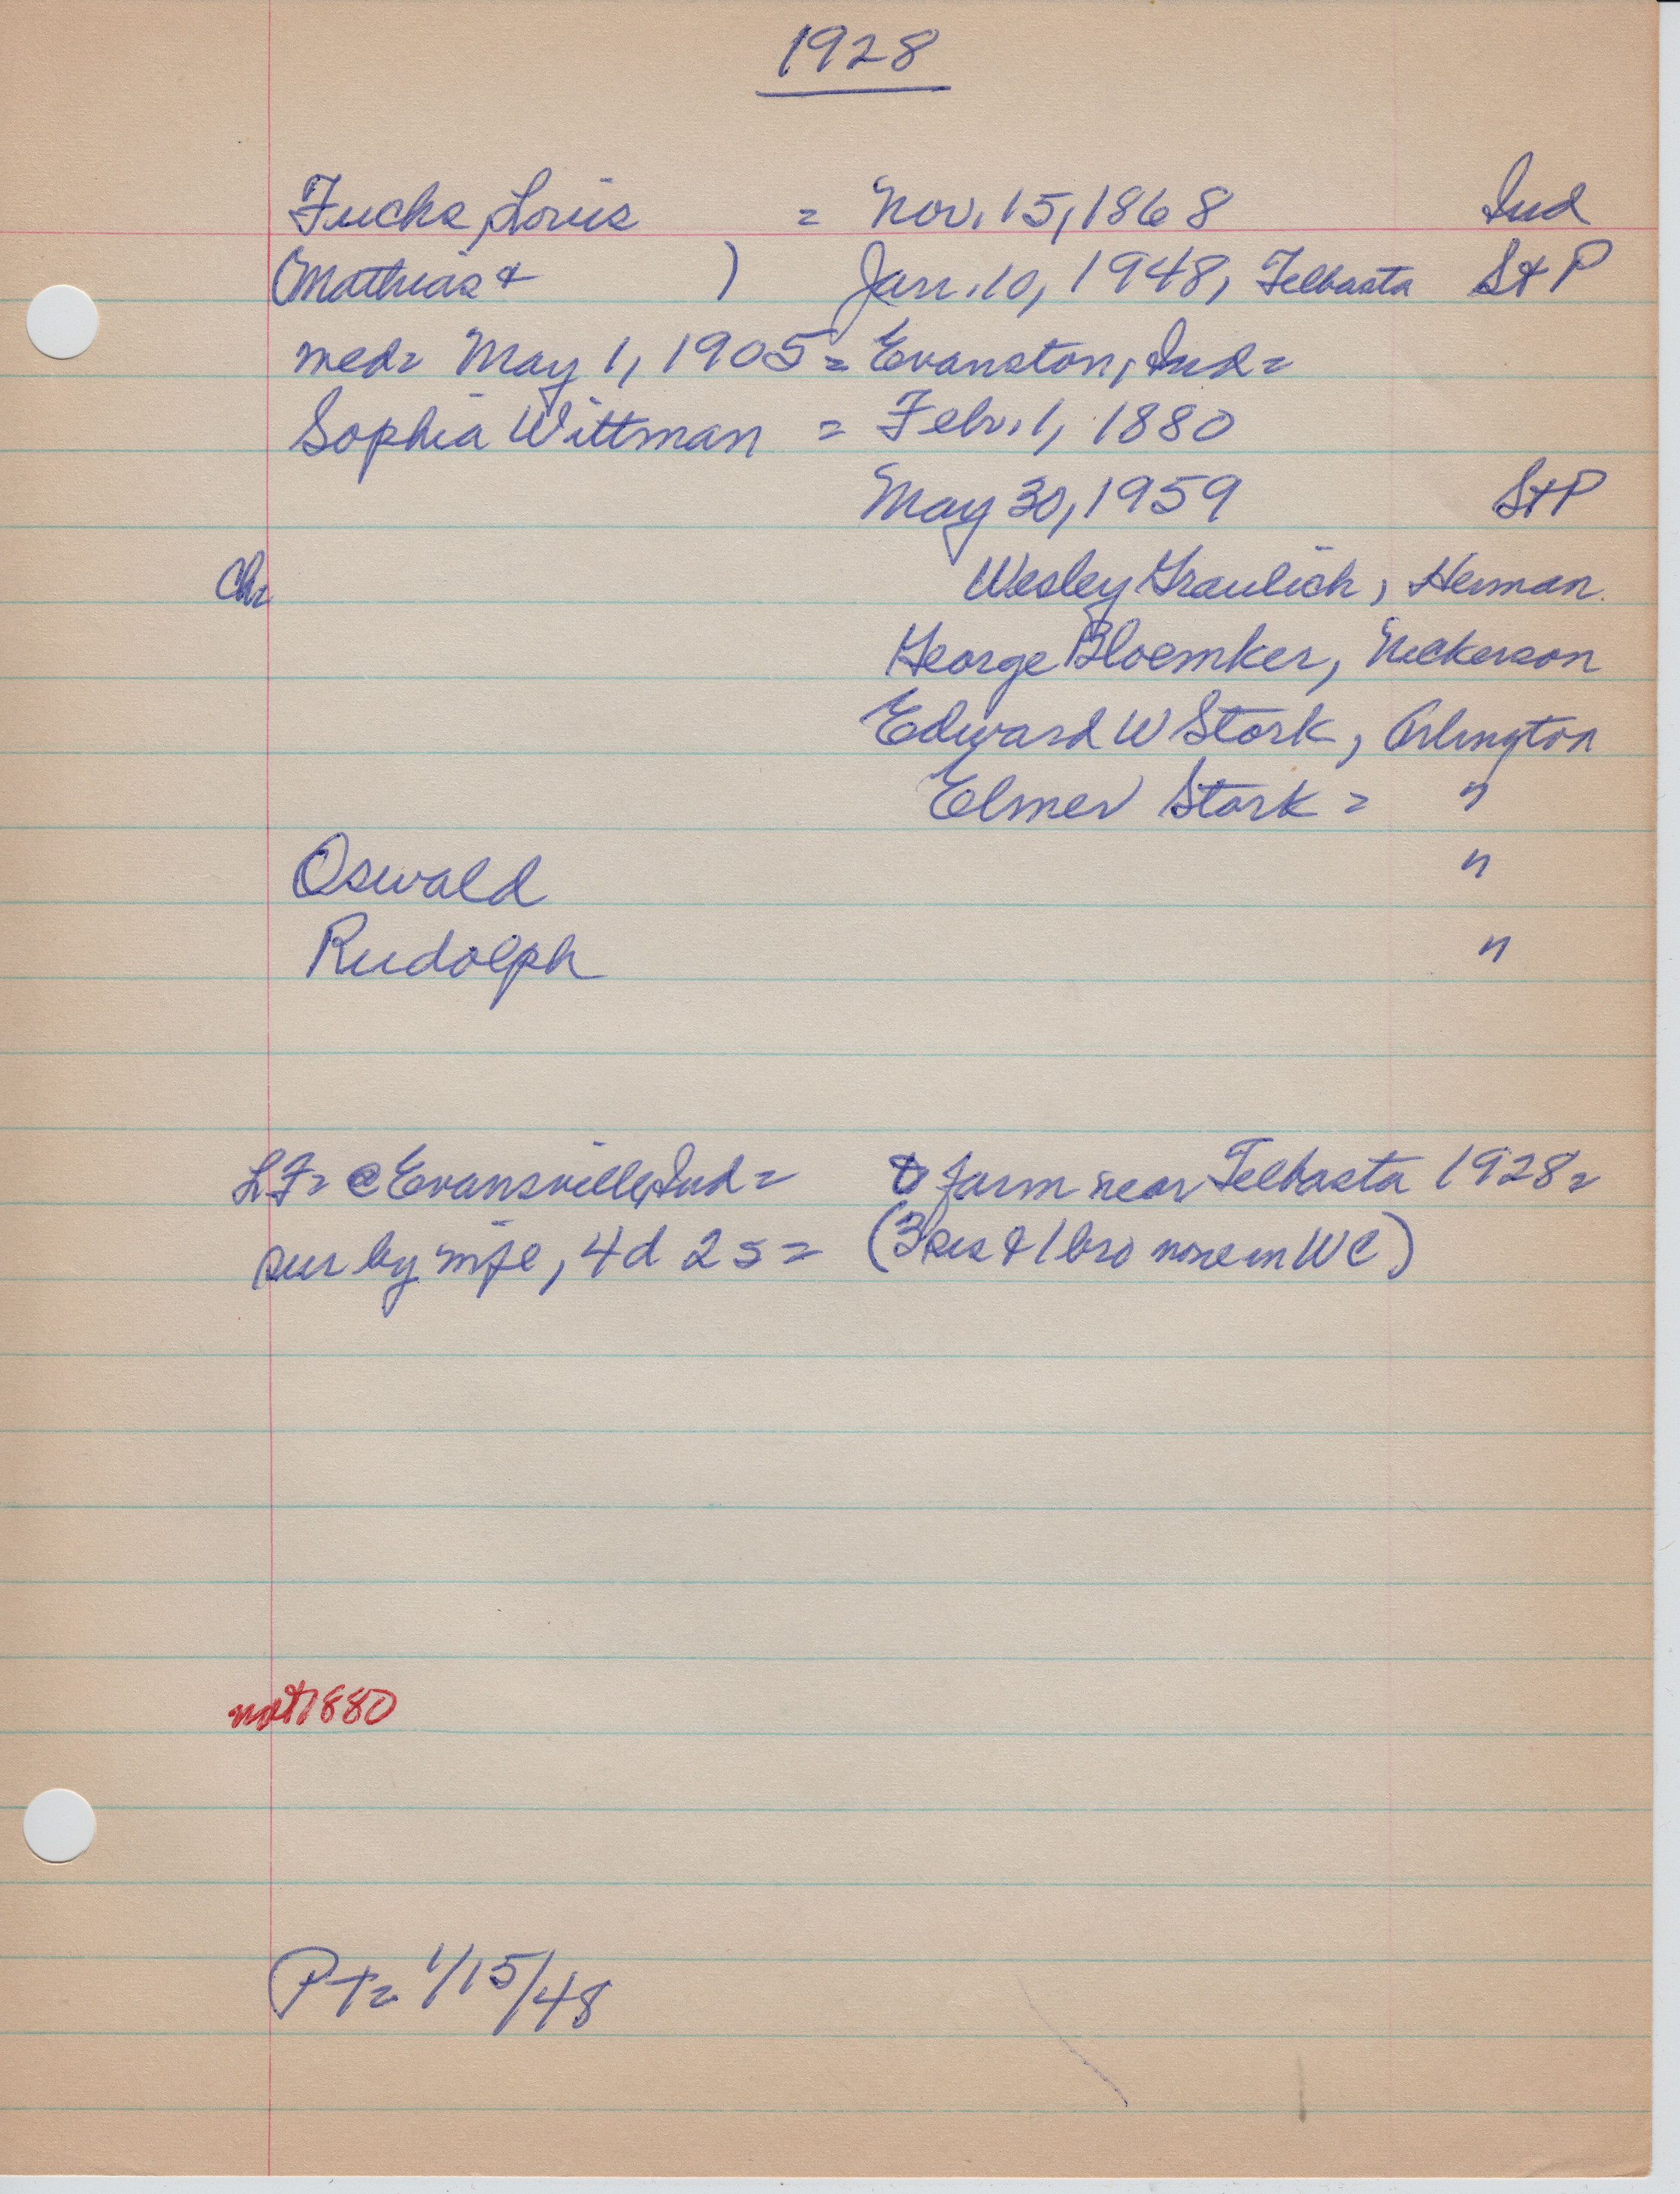 1928
Fuchs, Louis = Nov. 15, 1868 Ind
(Mathias & ) Jan. 10, 1948, Telbasta St P
med= May 1, 1905 = Evanston, Ind=
Sophia Wittman = Febr. 1, 1880
May 30, 1959 St P
Ch= Wesley Graulich, Herman.
George Bloemker, Nickerson
Edward W Stork, Arlington
Elmer Stork = "
Oswald "
Rudolph "
LF= @ Evansville, Ind= to farm near Telbasta 1928=
sur by wife, 4d 2s= (3 sis & 1 bro none in WC)
not 1880
PT= 1/15/48